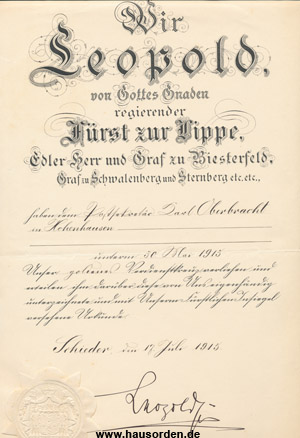 Wir
Leopold,
von Gottes Gnaden
regierender
Fürst zur Lippe,
Edler Herr und Graf zu Biesterfeld,
Graf in Schwalenberg und Sternberg etc. etc.,
haben dem Postsekretär Karl Oberbracht
in Hohenhausen
unterm 30 Mai 1915
Unser goldenes Verdienstkreuz verliehen und
erteilen ihm darüber diese von Uns eigenhändig
unterzeichnete und mit Unserm Fürstlichen Insiegel
versehene Urkunde.
Schieder, den 17 Juli 1915
Leopold
www.hausorden.de